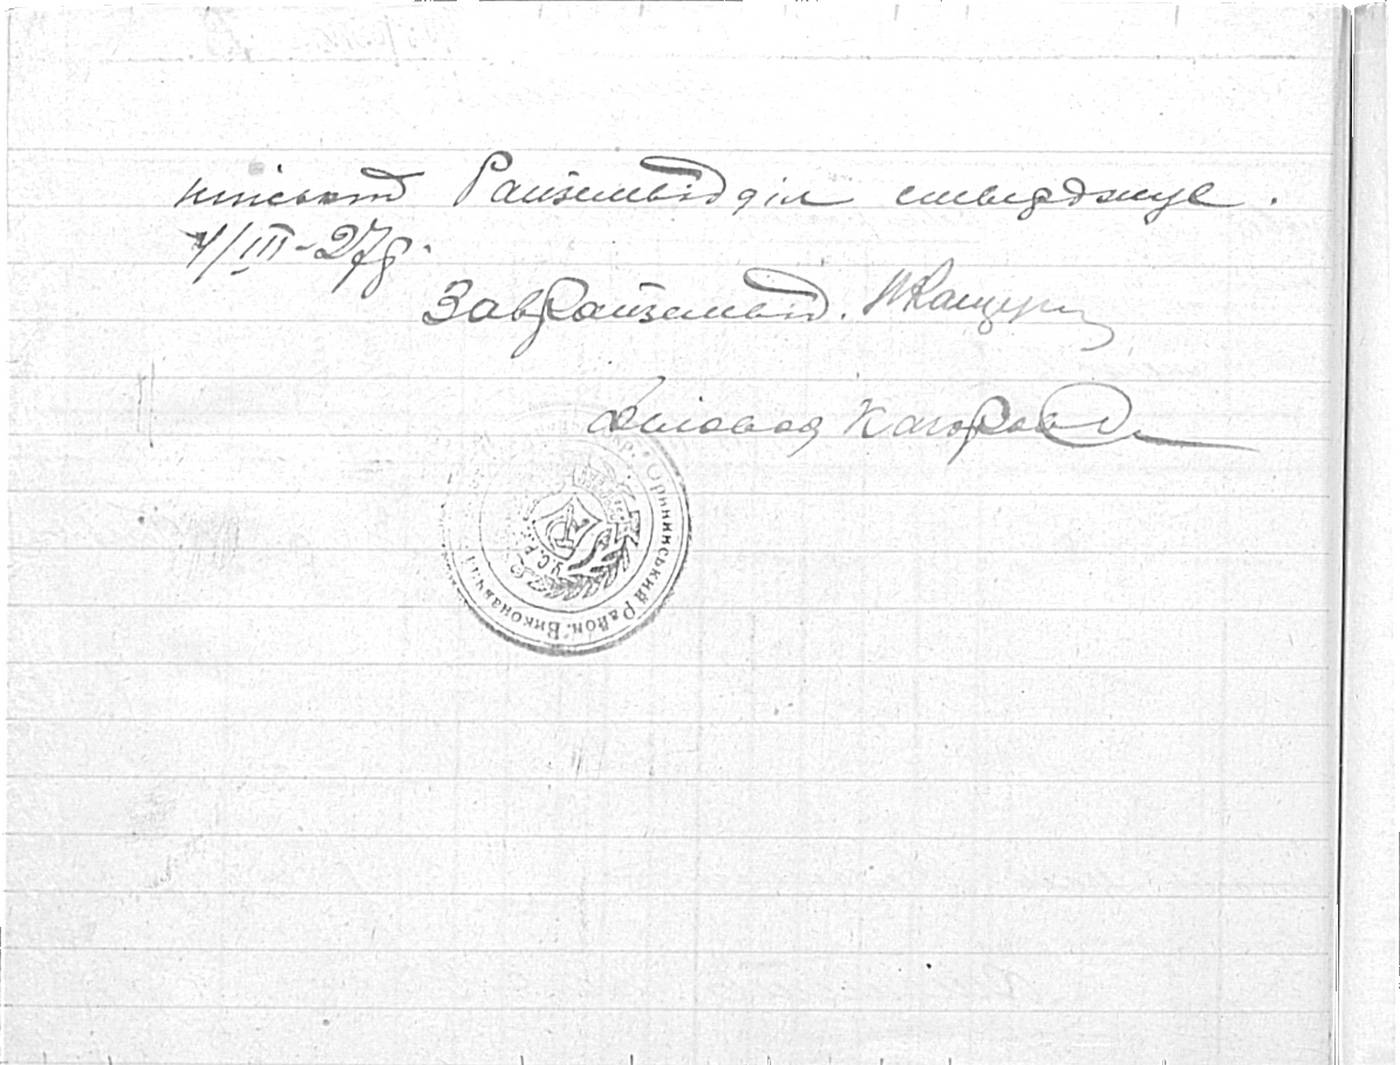 нінський Райземвідділ стверджує.
4/III-27р.
ЗавРайземвід.
Діловод
Орининський Район. Виконавчий
У.С.Р.Р.